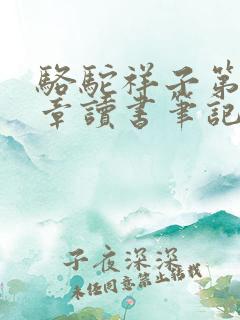 駱駝祥子第
章讀書筆記
子夜深深
未經同意禁止轉載